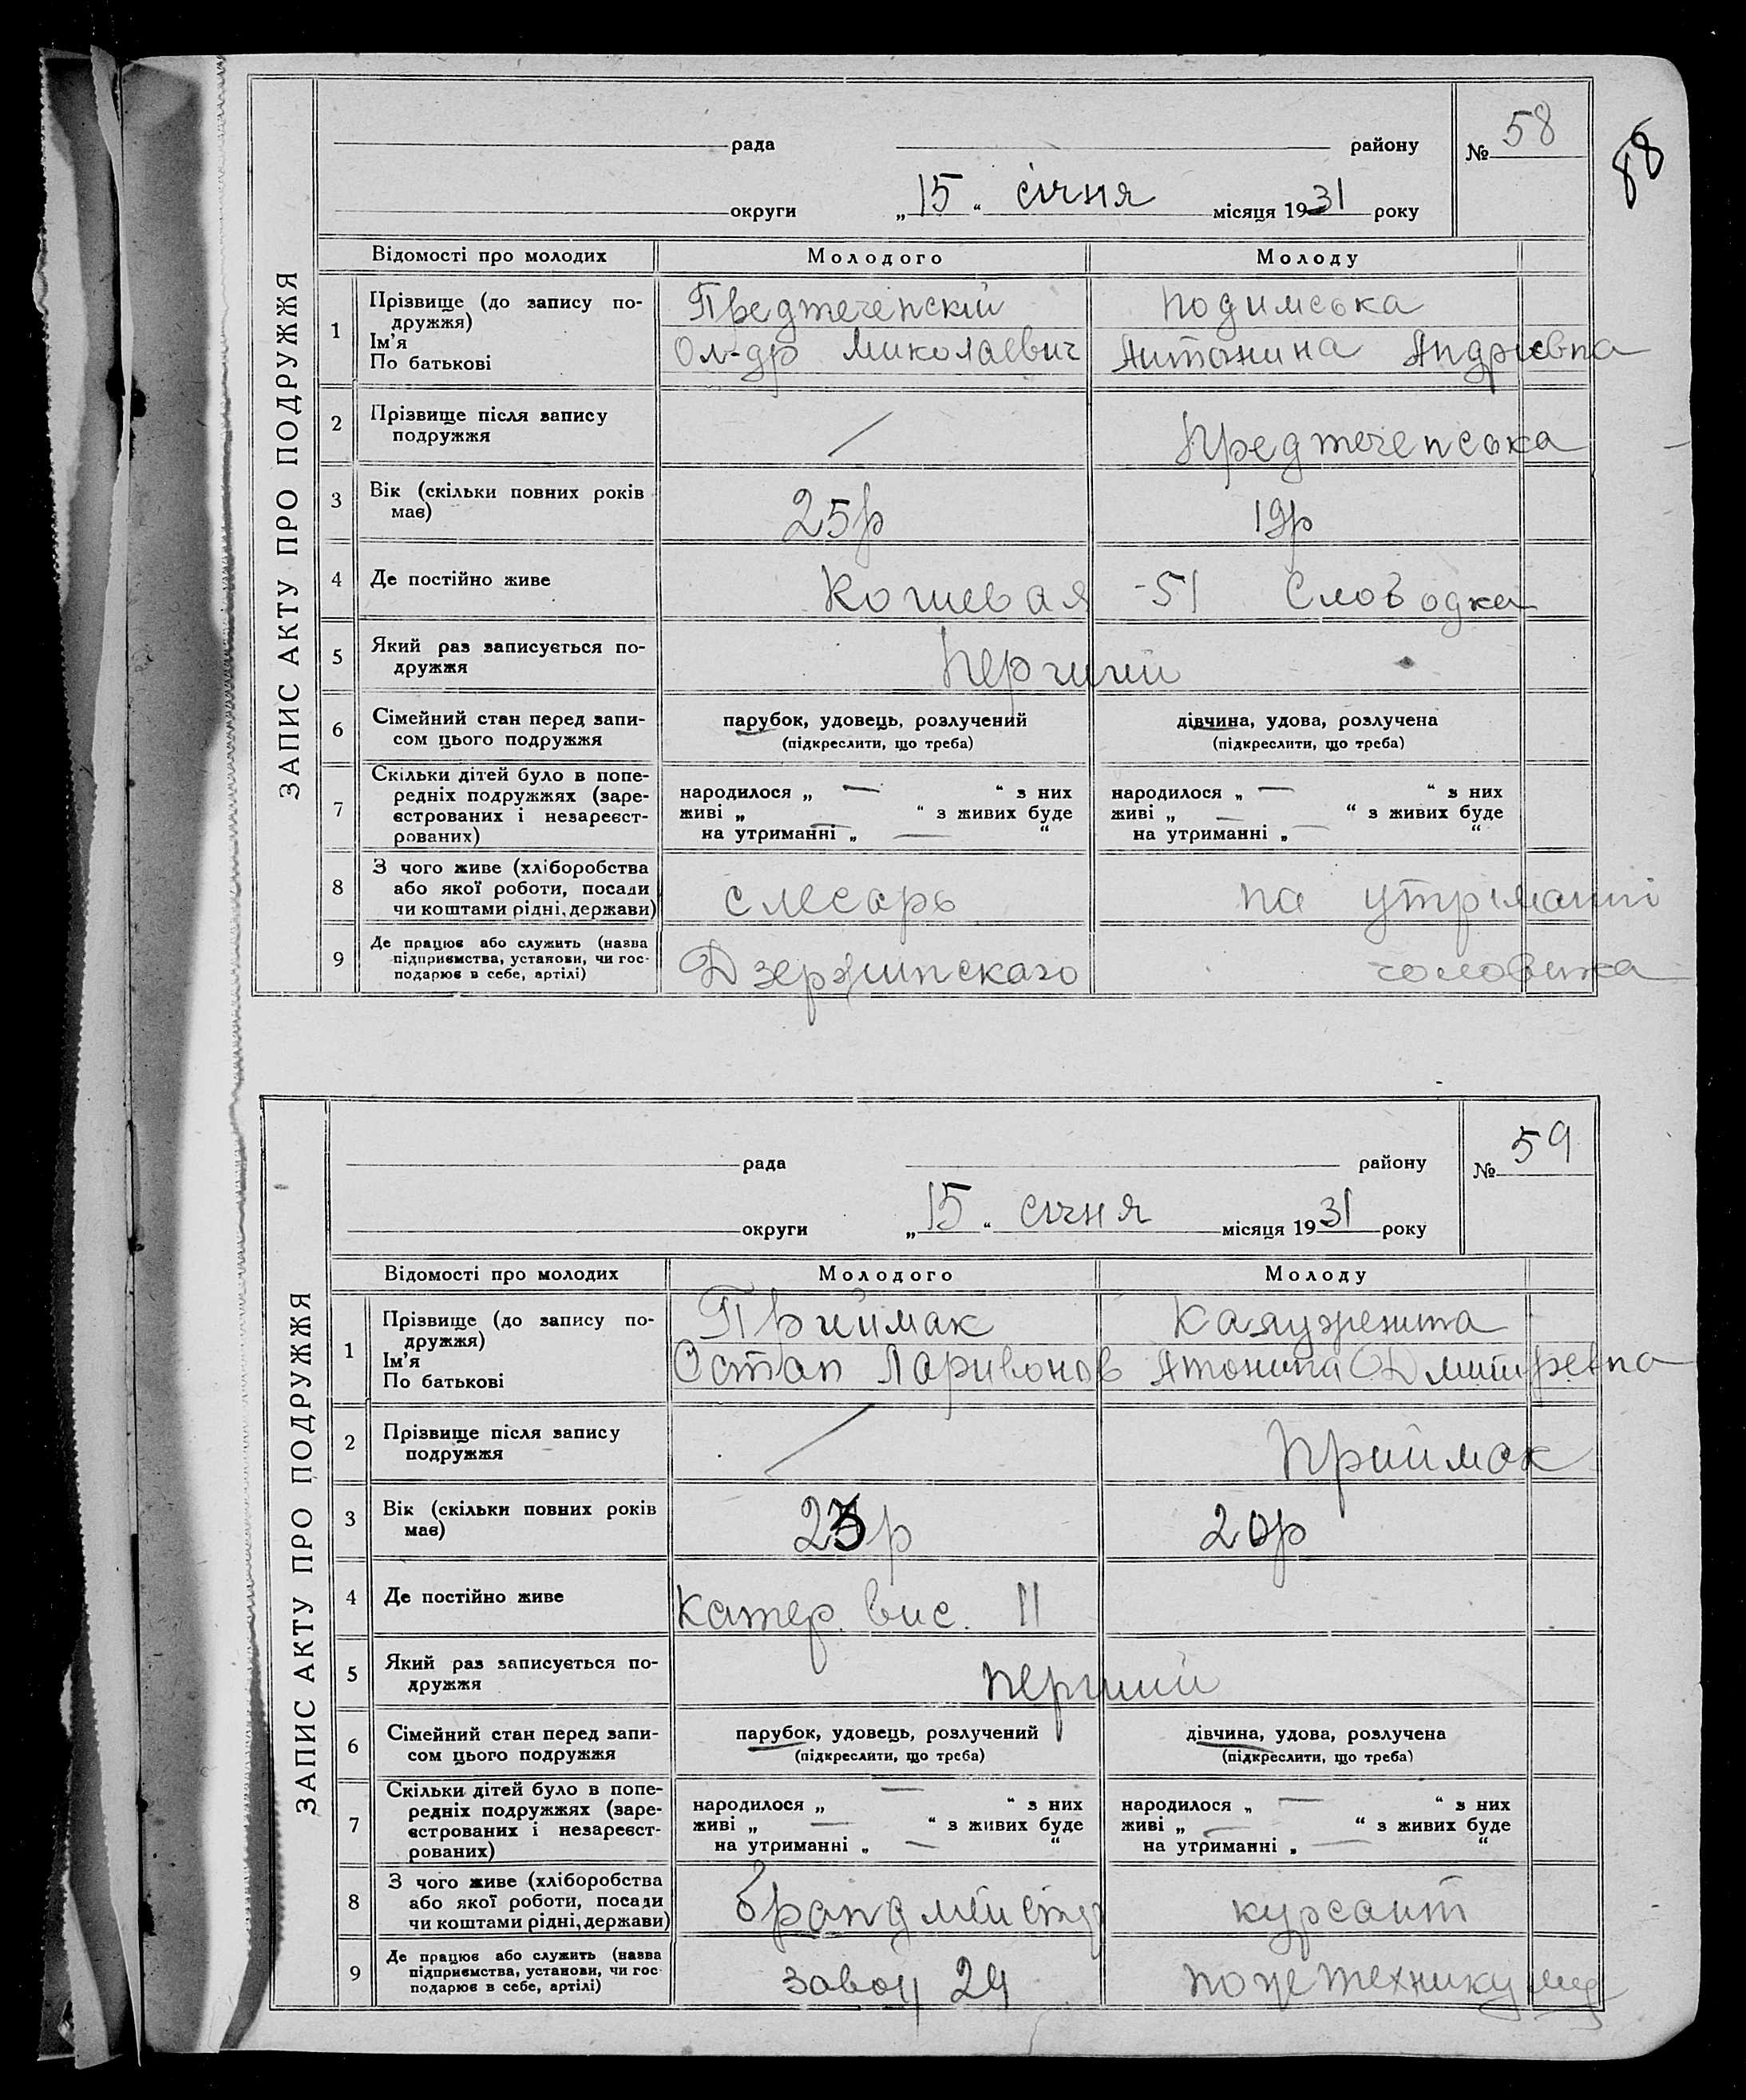 ЗАПИС АКТУ ПРО ПОДРУЖЖЯ
рада району № 58
88
округи „15“ січня місяця 1931 року
Відомості про молодих Молодого Молоду
1 Прізвище (до запису подружжя) Предтеченскій Подимська
Ім'я
По батькові Ол-др Миколаевич Антонина Андріевна
2 Прізвище після запису подружжя / Предтеченська
3 Вік (скільки повних років має) 25р 19р
4 Де постійно живе Кошевая -51 Слободка
5 Який раз записується подружжя Перший
6 Сімейний стан перед записом цього подружжя парубок, удовець, розлучений дівчина, удова, розлучена
(підкреслити, що треба) (підкреслити, що треба)
7 Скільки дітей було в попередніх подружжях (зареєстрованих і незареєстрованих)
народилося „ — “ з них народилося „ — “ з них
живі „ — “ з живих буде живі „ — “ з живих буде
на утриманні „ — “ на утриманні „ — “
8 З чого живе (хліборобства або якої роботи, посади чи коштами рідні, держави) слесарь на утріманні
9 Де працює або служить (назва підприємства, установи, чи господарює в себе, артілі) Дзержинскаго чоловика
ЗАПИС АКТУ ПРО ПОДРУЖЖЯ
рада району № 59
округи „15“ січня місяця 1931 року
Відомості про молодих Молодого Молоду
1 Прізвище (до запису подружжя) Приймак
Ім'я
По батькові Остап Ларивонов Атонина Дмитревна
2 Прізвище після запису подружжя / Приймак
3 Вік (скільки повних років має) 23р 20р
4 Де постійно живе Катер. вис. 11
5 Який раз записується подружжя перший
6 Сімейний стан перед записом цього подружжя парубок, удовець, розлучений дівчина, удова, розлучена
(підкреслити, що треба) (підкреслити, що треба)
7 Скільки дітей було в попередніх подружжях (зареєстрованих і незареєстрованих)
народилося „ — “ з них народилося „ — “ з них
живі „ — “ з живих буде живі „ — “ з живих буде
на утриманні „ — “ на утриманні „ — “
8 З чого живе (хліборобства або якої роботи, посади чи коштами рідні, держави) брандмейстр курсант
9 Де працює або служить (назва підприємства, установи, чи господарює в себе, артілі) завод 24